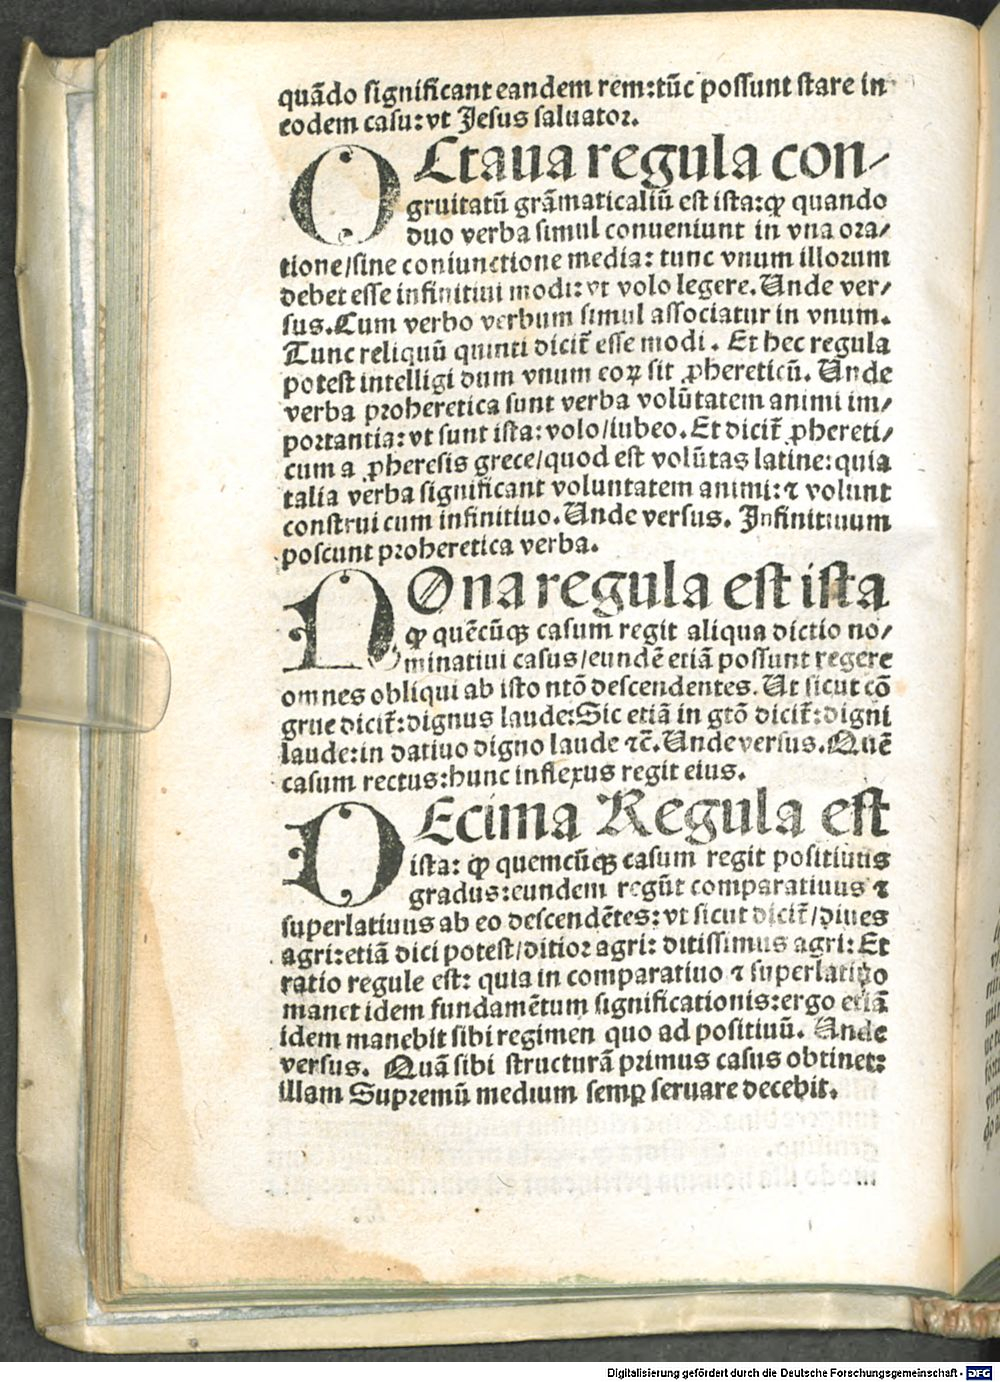 quãdo significant eandem rem: tũc possunt stare in
eodem casu: vt Jesus saluator.
OCtaua regula con-
gruitatũ grãmaticaliũ est ista: ꝙ quando
duo verba simul conueniunt in vna ora/
tione/sine coniunctione media: tunc vnum illorum
debet esse infinitiui modi: vt volo legere. Unde ver/
sus. Cum verbo verbum simul associatur in vnum.
Tunc reliquũ quinti dicit̃ esse modi. Et hec regula
potest intelligi dum vnum eoꝝ sit ꝓhereticũ. Unde
verba proheretica sunt verba volũtatem animi im/
portantia: vt sunt ista: volo/iubeo. Et dicit̃ ꝓhereti/
cum a ꝓheresis grece/quod est volũtas latine: quia
talia verba significant voluntatem animi: ⁊ volunt
construi cum infinitiuo. Unde versus. Infinitiuum
poscunt proheretica verba.
NOna regula est ista
ꝙ quẽcũqꝫ casum regit aliqua dictio no/
minatiui casus/eundẽ etiã possunt regere
omnes obliqui ab isto ntõ descendentes. Ut sicut cõ
grue dicit̃: dignus laude: Sic etiã in gtõ dicit̃: digni
laude: in datiuo digno laude ⁊c̃. Unde versus. Quẽ
casum rectus: hunc inflexus regit eius.
DEcima Regula est
ista: ꝙ quemcũqꝫ casum regit positiuus
gradus: eundem regũt comparatiuus ⁊
superlatiuus ab eo descendẽtes: vt sicut dicit̃/diues
agri: etiã dici potest/ditior agri: ditissimus agri: Et
ratio regule est: quia in comparatiuo ⁊ superlatiuo
manet idem fundamẽtum significationis: ergo etiã
idem manebit sibi regimen quo ad positiuũ. Unde
versus. Quã sibi structurã primus casus obtinet:
illam Supremũ medium semꝑ seruare decebit.
Digitalisierung gefördert durch die Deutsche Forschungsgemeinschaft - DFG